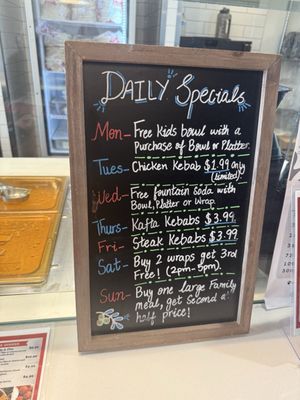 DAILY Specials
Mon- Free kids bowl with a
Purchase of Bowl or Platter.
Tues- Chicken Kebab $1.99 Only
(Limited)
Wed- Free fountain soda with
Bowl, Platter or Wrap.
Thurs- Kafta Kebabs $3.99
Fri- Steak Kebabs $3.99
Sat- Buy 2 wraps get 3rd
Free! (2pm-5pm).
Sun- Buy one large Family
meal, get Second a
half price!